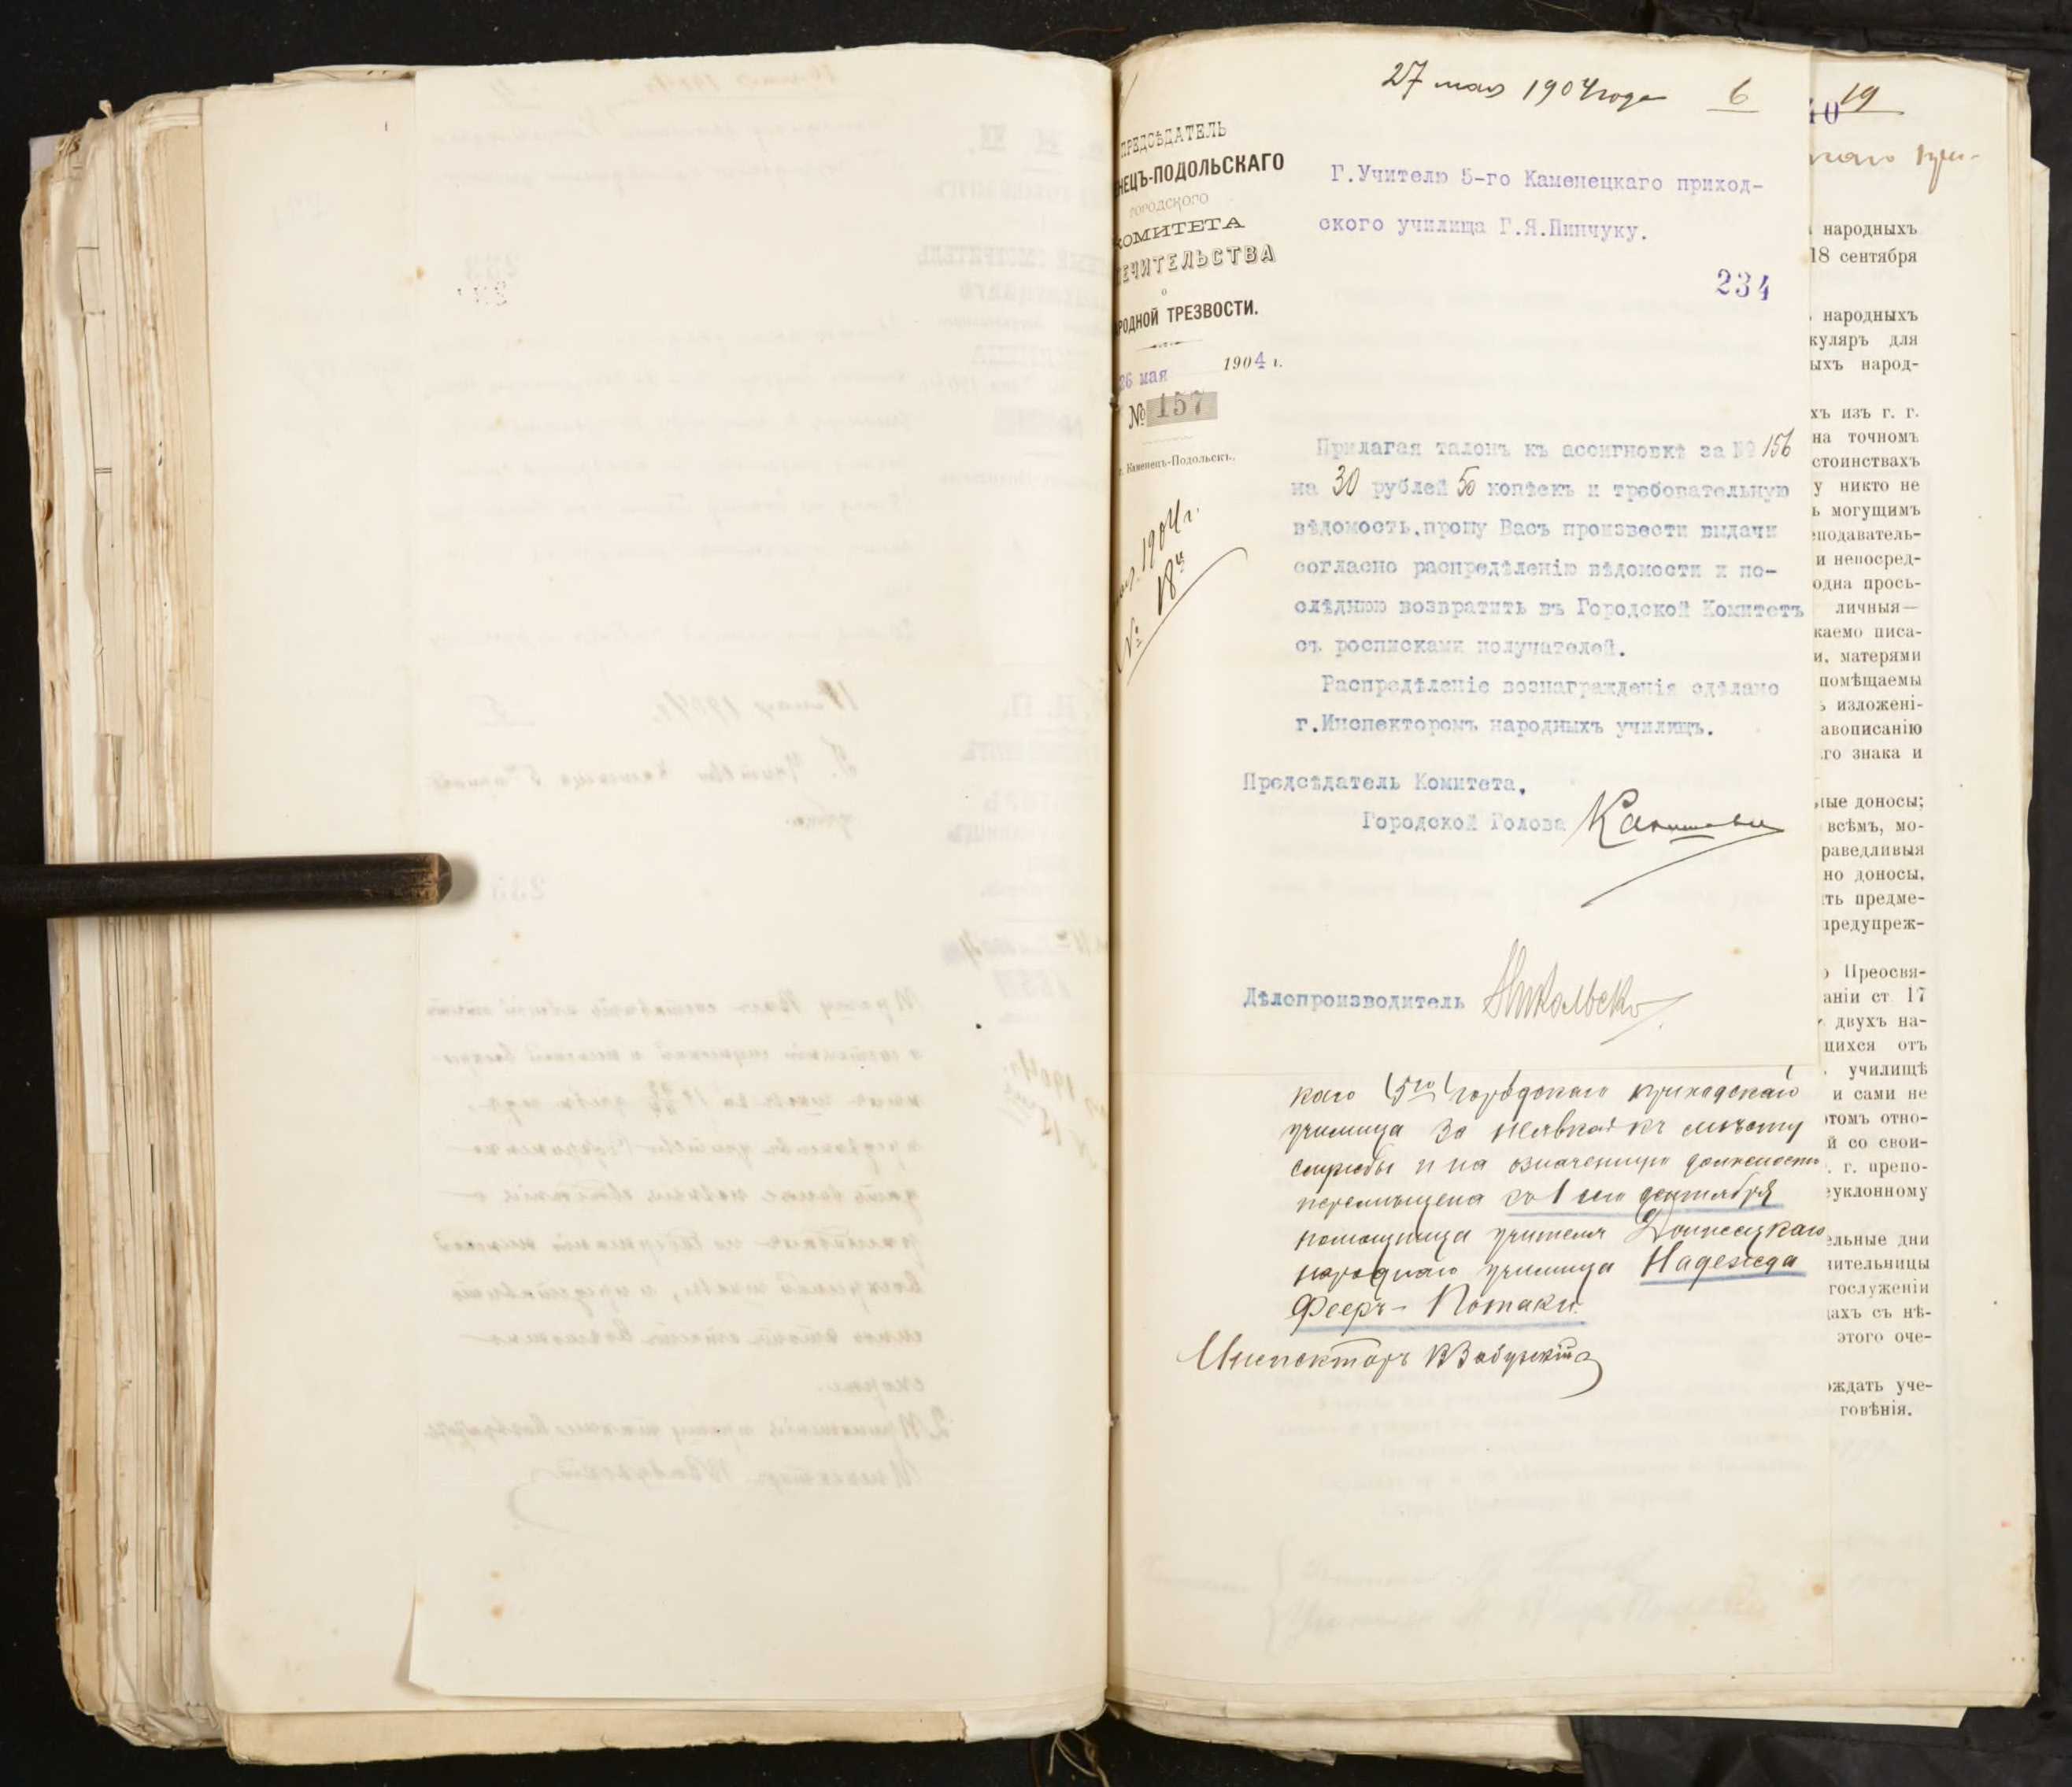 27 мая 1904 года 6
19
ПРЕДСѢДАТЕЛЬ
НЕЦЪ-ПОДОЛЬСКАГО
ГОРОДСКОГО
КОМИТЕТА
ЕЧИТЕЛЬСТВА
О
РОДНОЙ ТРЕЗВОСТИ.
26 мая 1904 г.
№ 157
г. Каменецъ-Подольскъ.
1904 г.
№ 18
Г.Учителю 5-го Каменецкаго приход-
ского училища Г.Я.Пинчуку.
234
Прилагая талонъ къ ассигновкѣ за № 156
на 30 рублей 50 копѣекъ и требовательную
вѣдомость,прошу Васъ произвести выдачи
согласно распредѣленію вѣдомости и по-
слѣднюю возвратить въ Городской Комитетъ
съ росписками получателей.
Распредѣленіе вознагражденія сдѣлано
г.Инспекторомъ народныхъ училищъ.
Предсѣдатель Комитета,
Городской Голова
Дѣлопроизводитель
каго (5го) городскаго приходскаго
училища за неявкой къ мѣсту
службы и на означенную должность
перемѣщена съ 1 сего сентября
помощница учителя
народнаго училища Надежда
Фееръ-Потаки.
Инспекторъ
народныхъ
18 сентября
народныхъ
куляръ для
ыхъ народ-
хъ изъ г. г.
на точномъ
стоинствахъ
у никто не
ь могущимъ
еподаватель-
и непосред-
одна прось-
личныя—
каемо писа-
и, матерями
помѣщаемы
ь изложені-
авописанію
го знака и
ные доносы;
всѣмъ, мо-
раведливыя
но доносы,
ть предме-
предупреж-
о Преосвя-
аніи ст 17
двухъ на-
щихся отъ
училищѣ
и сами не
этомъ отно-
й со свои-
г. г. препо-
еуклонному
ельные дни
ительницы
гослуженіи
цахъ съ нѣ-
этого оче-
ождать уче-
говѣнія.